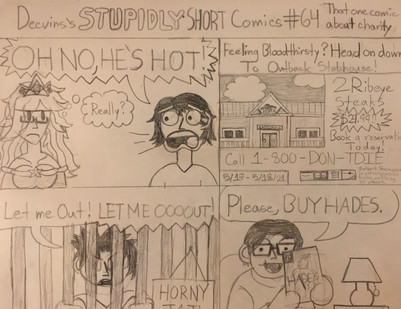 Deevins's STUPIDLY SHORT Comics #64
That one comic
about charity
OH NO, HE'S HOT!
Really?
Feeling Bloodthirsty? Head on down
To Outback Stabhouse!
2 Ribeye
Steaks
Book a reservation
Today!
Call 1-800-DON-TDIE
5/17 - 5/18/21
Let me Out! LET ME OOOOUT!
HORNY
JAIL
Please, BUY HADES.
HADES